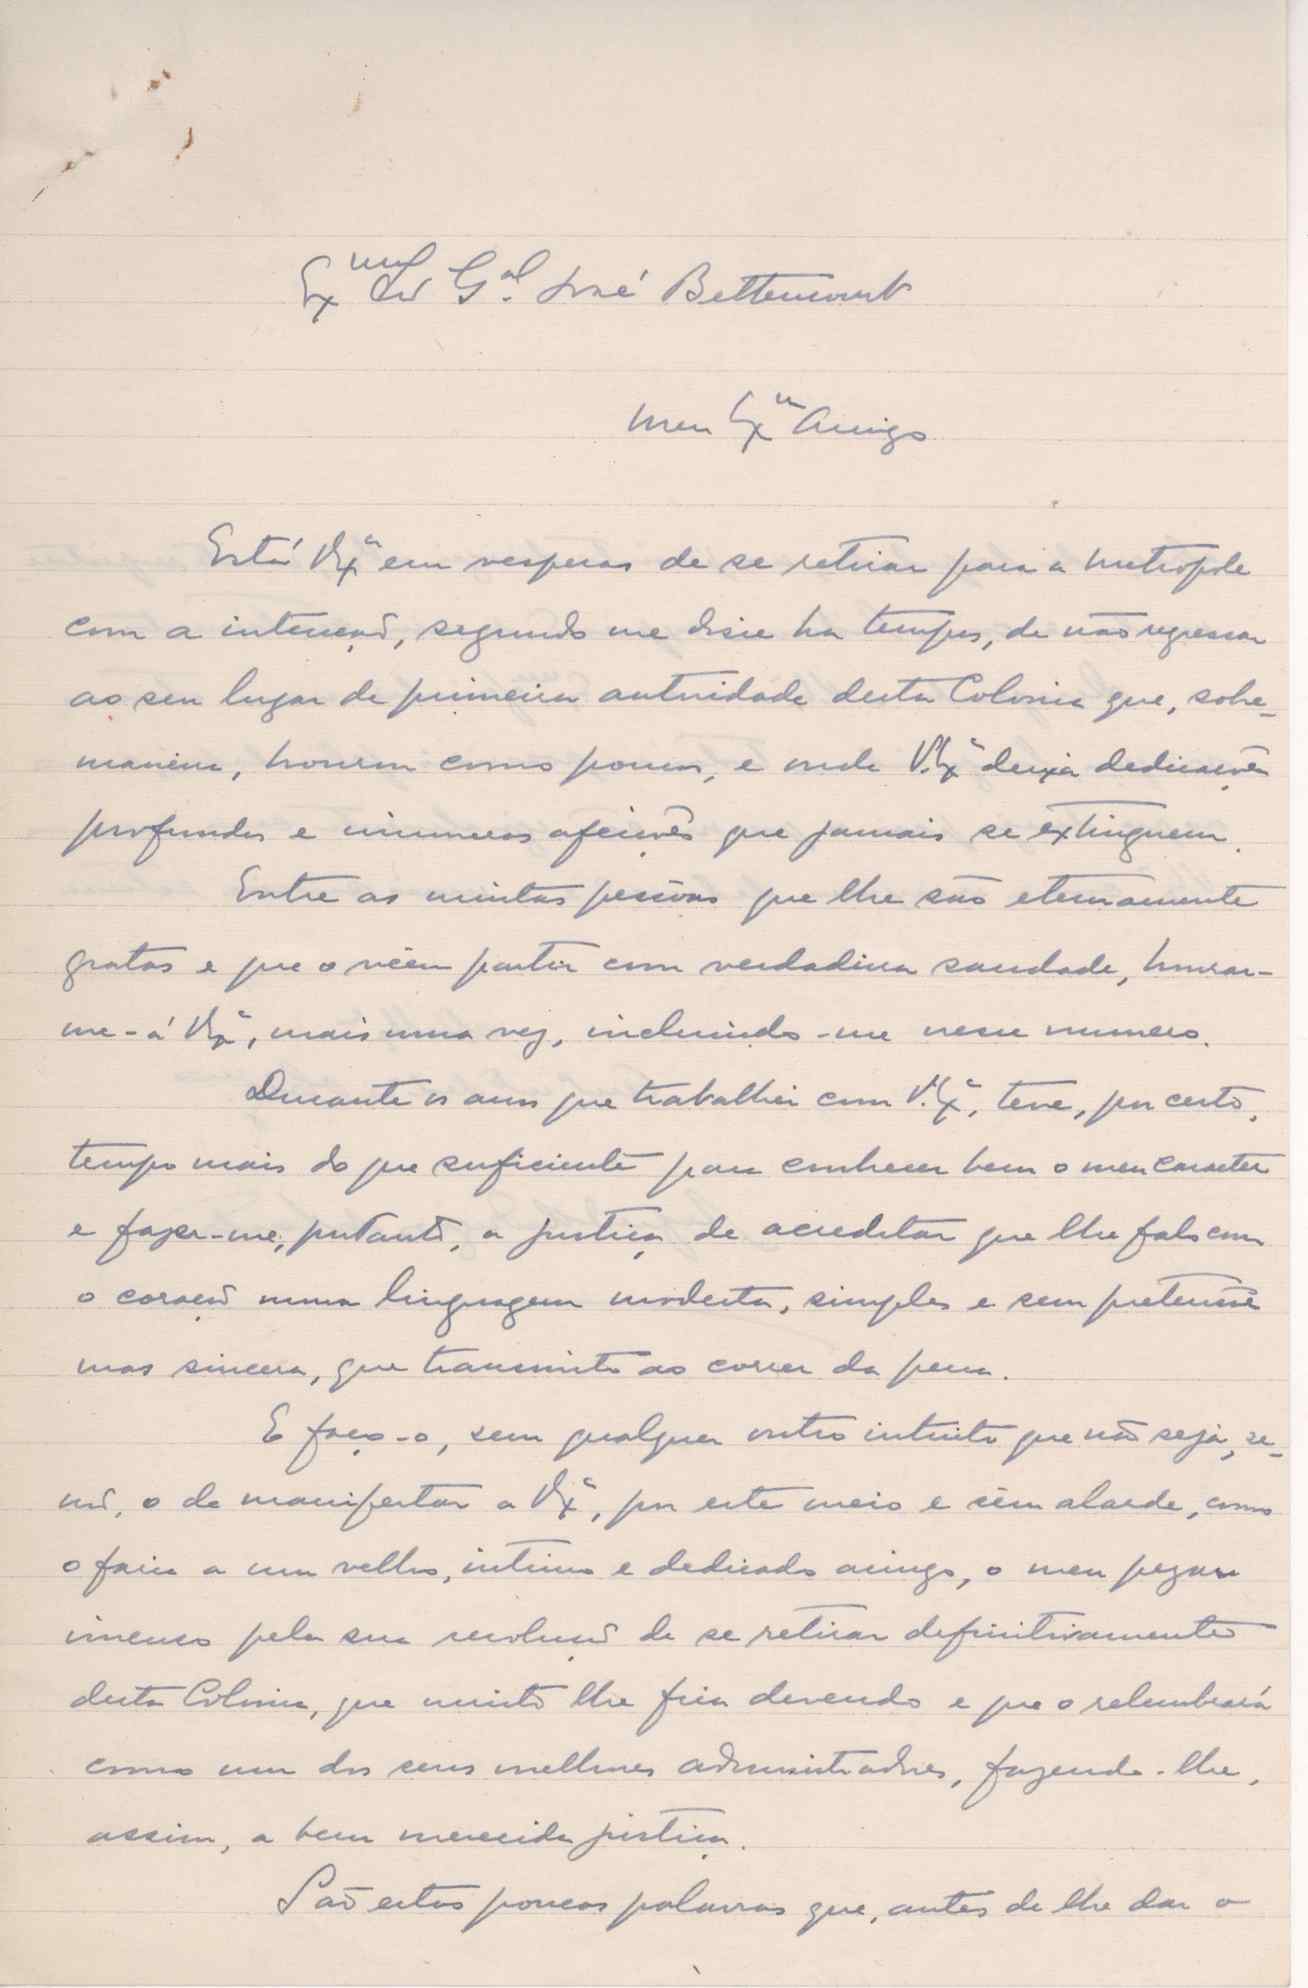 Exmo Sr Gal. José Bettencourt
Meu Exmo Amigo
Está V.Exª em vesperas de se retirar para a Metropole
com a intenção, segundo me disse ha tempos, de não regressar
ao seu lugar de primeira autoridade desta Colonia que, sobre-
maneira, honrou como poucos, e onde V.Exª deixa dedicações
profundas e inumeras afeições que jamais se extinguem.
Entre as muitas pessoas que lhe são eternamente
gratas e que o vêem partir com verdadeira saudade, honrar-
me-á V.Exª, mais uma vez, incluindo-me nesse numero.
Durante os anos que trabalhei com V.Exª, teve, por certo,
tempo mais do que suficiente para conhecer bem o meu caracter
e fazer-me, portanto, a justiça de acreditar que lhe falo com
o coração numa linguagem modesta, simples e sem pretensões
mas sincera, que transmito ao correr da pena.
E faço-o, sem qualquer outro intuito que não seja, se-
não, o de manifestar a V.Exª, por este meio e sem alarde, como
o faria a um velho, intimo e dedicado amigo, o meu pezar
imenso pela sua resolução de se retirar definitivamente
desta Colonia, que muito lhe fica devendo e que o relembrará
como um dos seus melhores administradores, fazendo-lhe,
assim, a bem merecida justiça.
São estas poucas palavras que, antes de lhe dar o